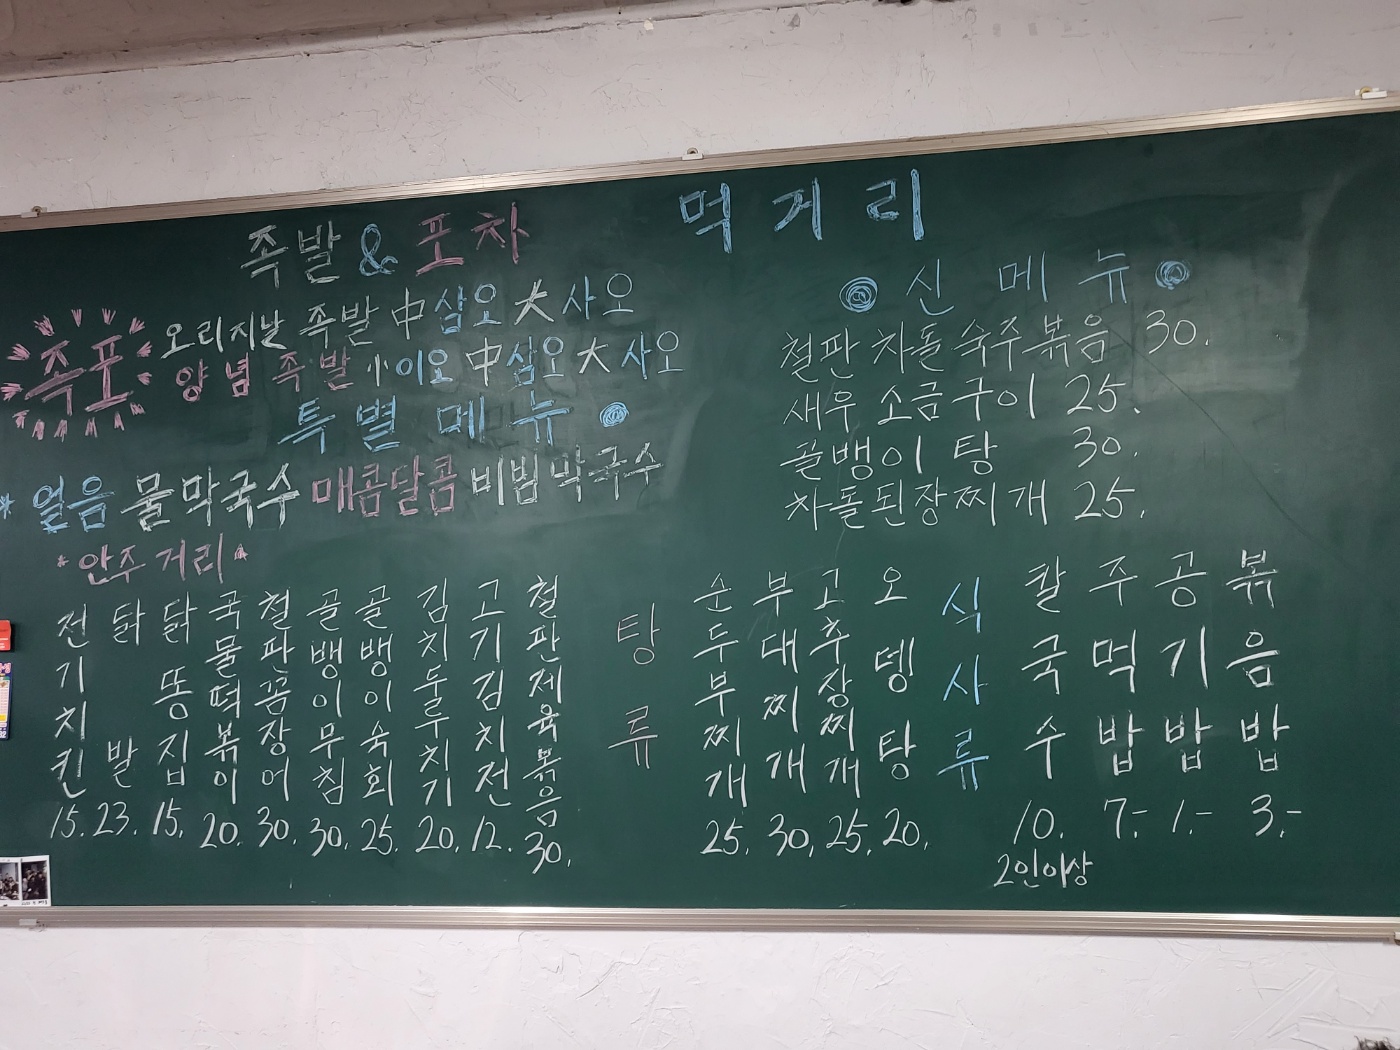 먹거리
족발 & 포차
족포
오리지날 족발 中 삼오 大 사오
양념 족발 小 이오 中 삼오 大 사오
특별 메뉴
* 얼음 물막국수 매콤달콤 비빔막국수
*안주거리*
전기치킨 15.
닭발 23.
닭똥집 15.
국물떡볶이 20.
철판꼼장어 30.
골뱅이무침 30.
골뱅이숙회 25.
김치두루치기 20.
고기김치전 12.
철판제육볶음 30.
신메뉴
철판 차돌 숙주볶음 30.
새우 소금구이 25.
골뱅이 탕 30.
차돌된장찌개 25.
탕류
순두부찌개 25.
부대찌개 30.
고추장찌개 25.
오뎅탕 20.
식사류
칼국수 10.
2인이상
주먹밥 7.-
공기밥 1.-
볶음밥 3.-